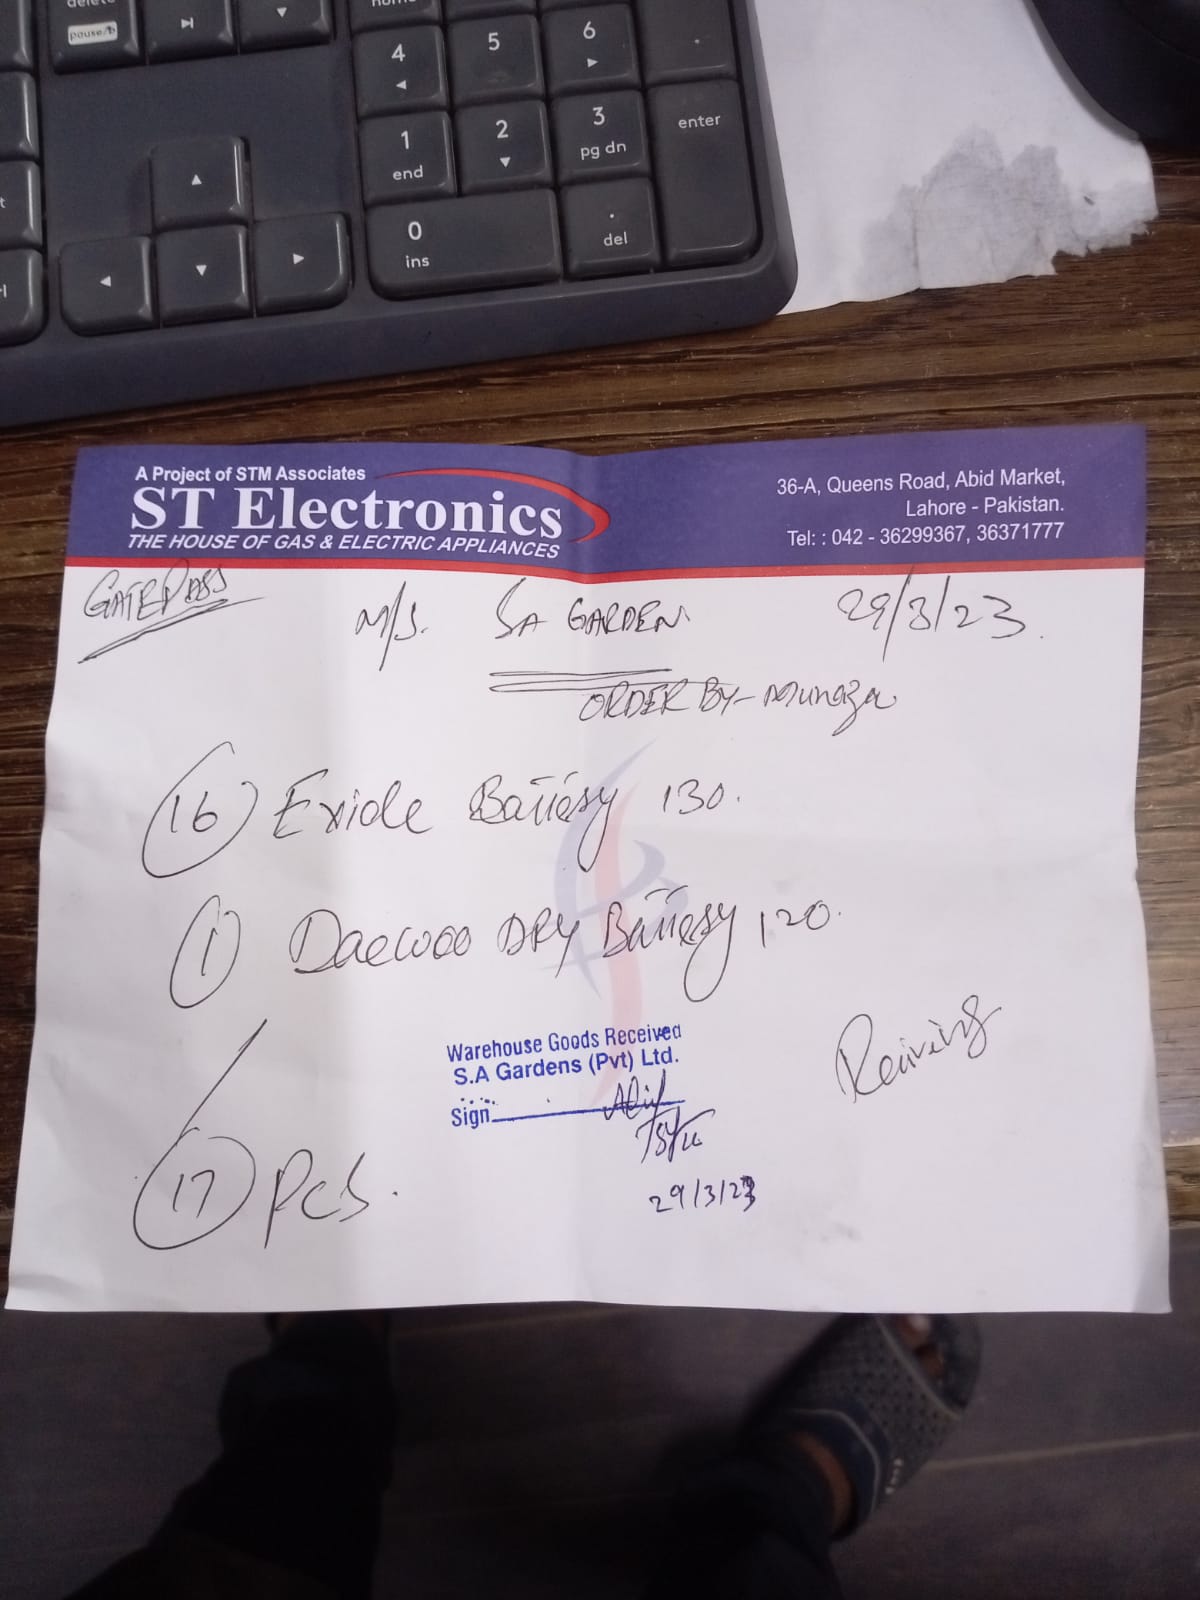 delete
pause/b
home
4
5
6
1
end
2
3
pg dn
enter
0
ins
.
del
A Project of STM Associates
ST Electronics
THE HOUSE OF GAS & ELECTRIC APPLIANCES
36-A, Queens Road, Abid Market,
Lahore - Pakistan.
Tel: : 042 - 36299367, 36371777
GATEPASS
M/S. SA GARDEN 29/3/23.
ORDER BY- Munaza
16 Exide Battery 130.
1 Daewoo DRY Battery 120.
Warehouse Goods Received
S.A Gardens (Pvt) Ltd.
Sign
29/3/23
Reiiving
17 Pcs.